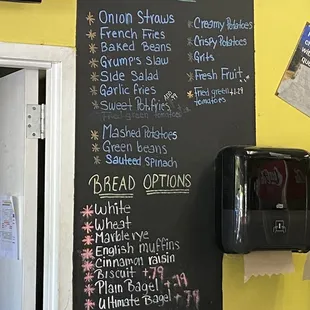 Onion Straws
French Fries
Baked Beans
Grump's Slaw
Side Salad
Garlic fries
Sweet Pot. Fries
Fried green tomatoes
Mashed Potatoes
Green beans
Sauteed Spinach
Creamy Potatoes
Crispy Potatoes
Grits
Fresh Fruit
Fried green
tomatoes
BREAD OPTIONS
White
Wheat
Marble rye
English muffins
Cinnamon raisin
Biscuit +.79
Plain Bagel +.79
Ultimate Bagel +.79